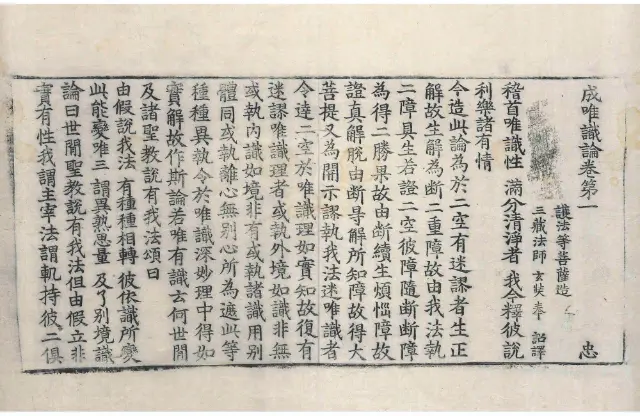 成唯識論卷第一 忠
護法等菩薩造
三藏法師玄奘奉 詔譯
稽首唯識性 滿分清淨者 我今釋彼說
利樂諸有情
今造此論為於二空有迷謬者生正
解故生解為斷二重障故由我法執
二障具生若證二空彼障隨斷斷障
為得二勝果故由斷續生煩惱障故
證真解脫由斷导解所知障故得大
菩提又為開示謬執我法迷唯識者
令達二空於唯識理如實知故復有
迷謬唯識理者或執外境如識非無
或執內識如境非有或執諸識用別
體同或執離心無別心所為遮此等
種種異執令於唯識深妙理中得如
實解故作斯論若唯有識云何世間
及諸聖教說有我法頌曰
由假說我法 有種種相轉 彼依識所變
此能變唯三 謂異熟思量 及了別境識
論曰世間聖教說有我法但由假立非
實有性我謂主宰法謂軌持彼二俱